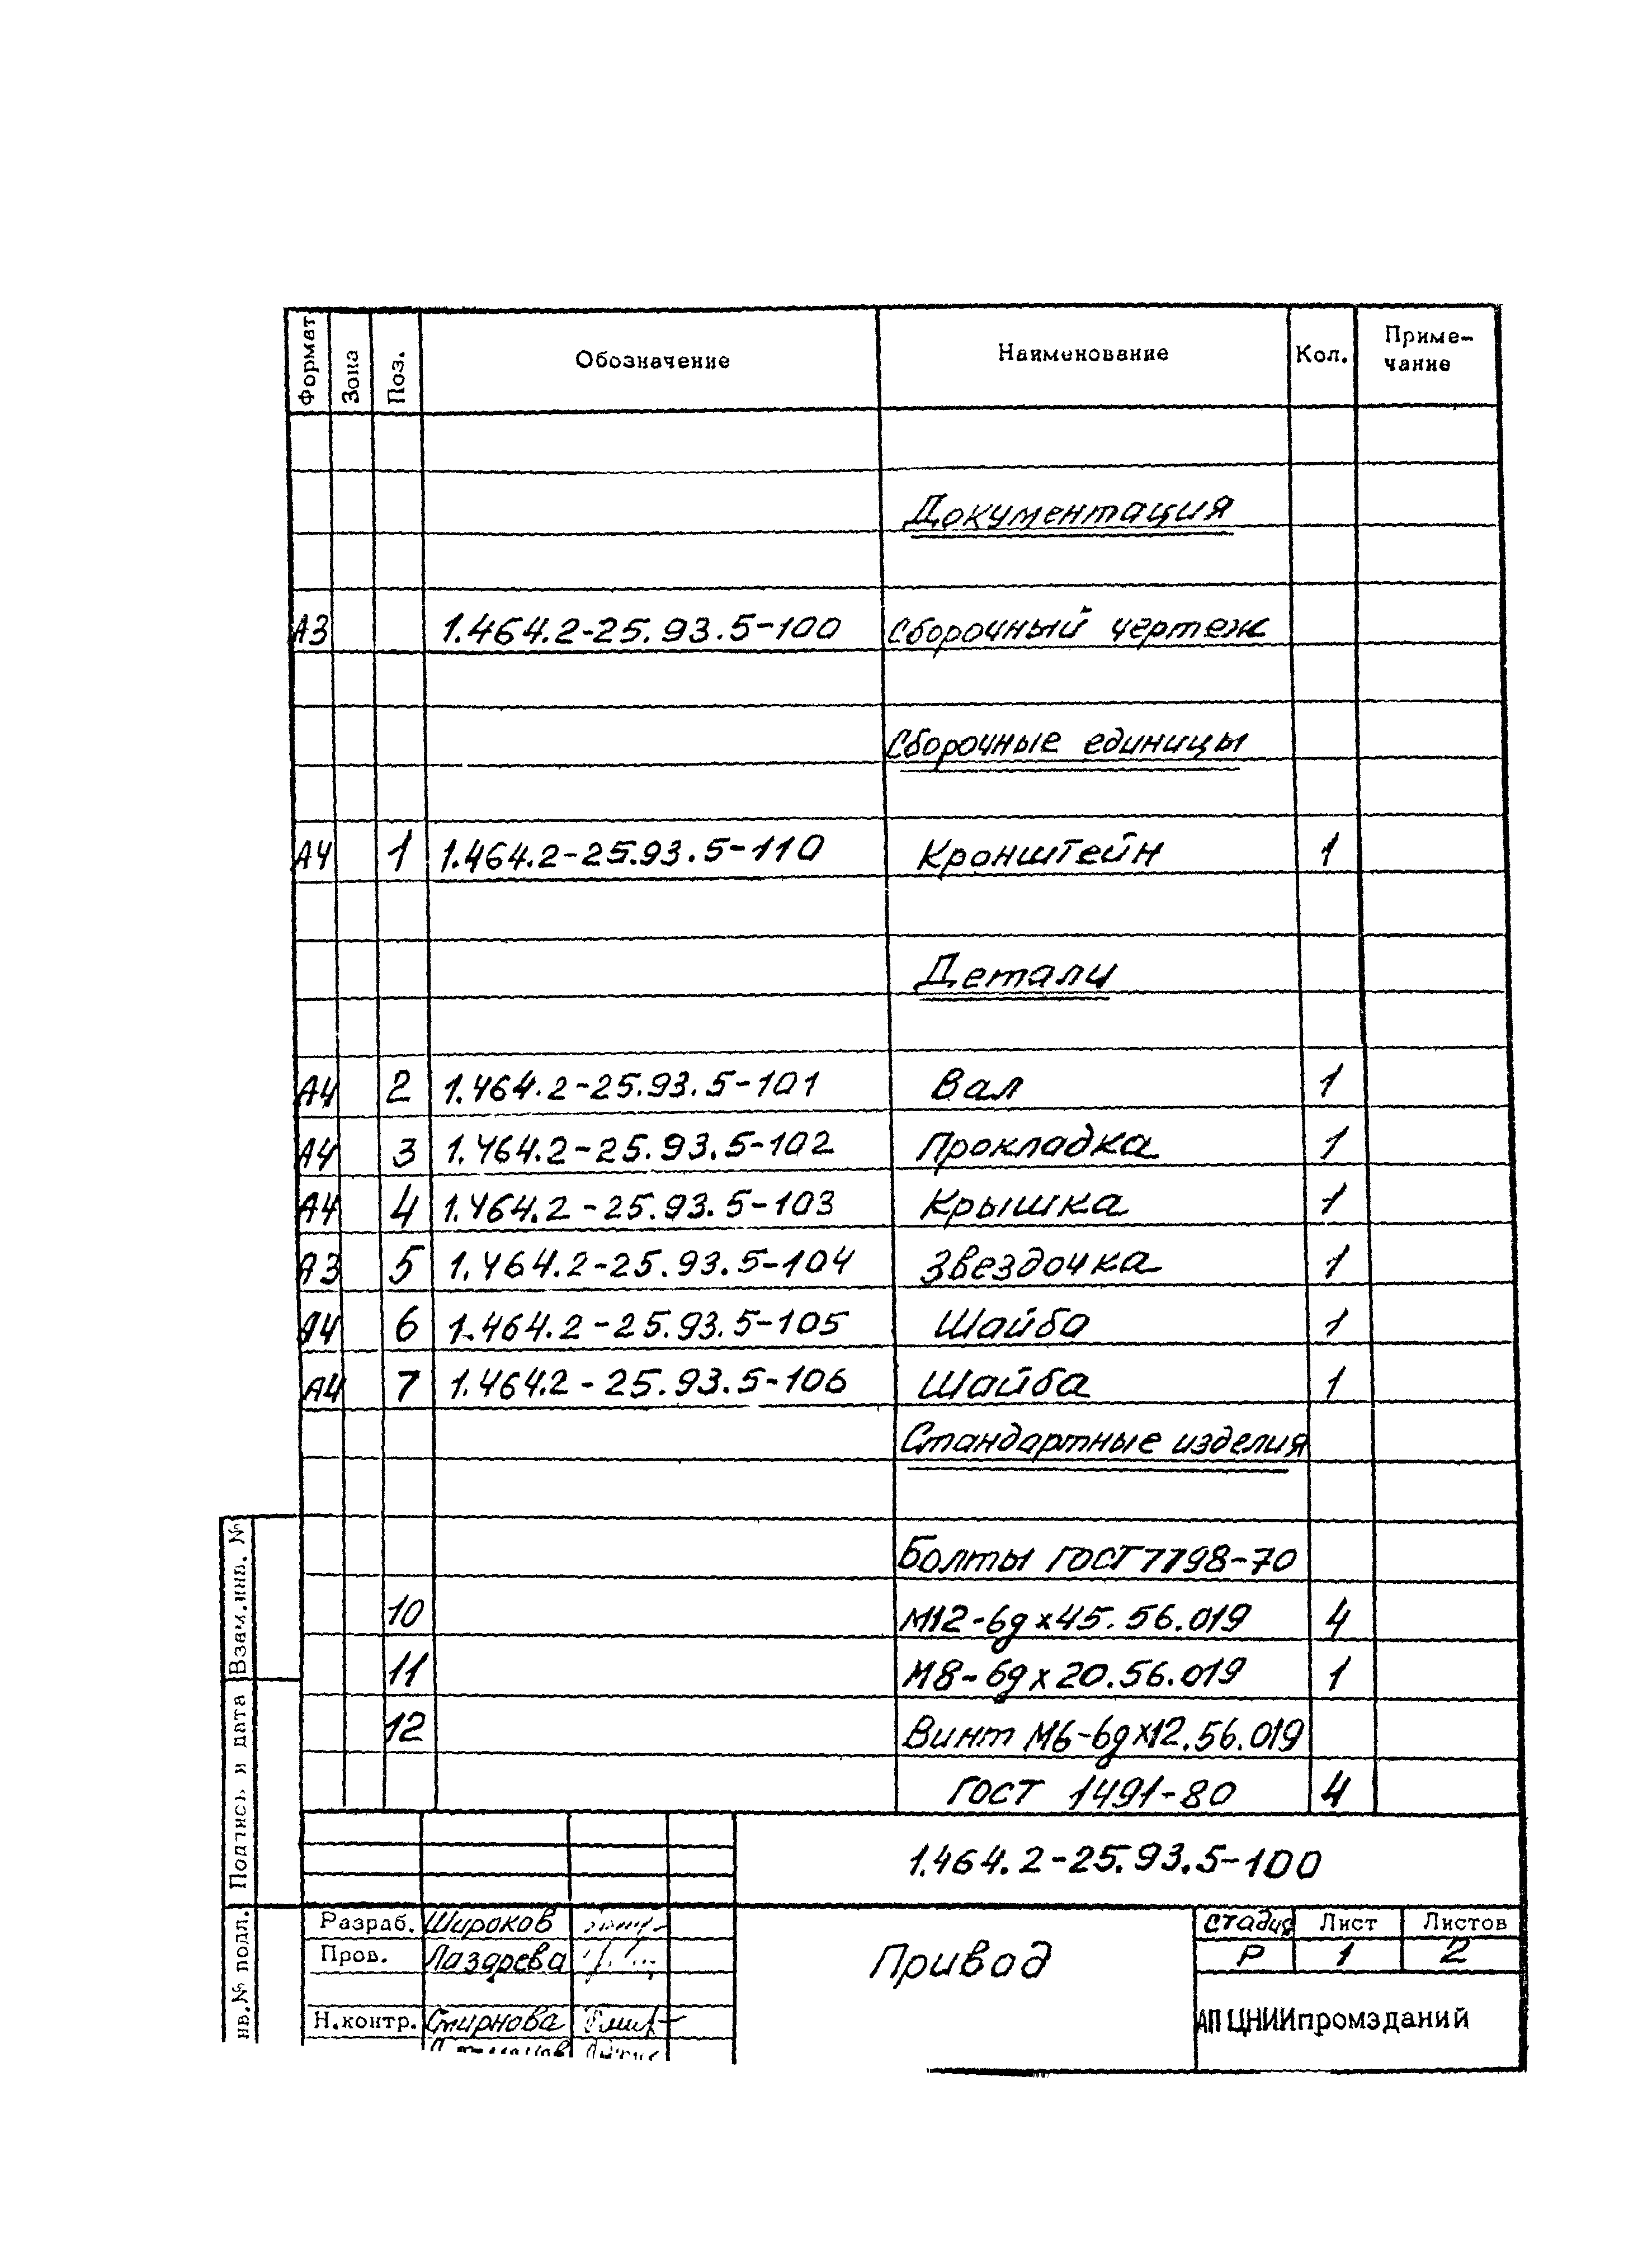 Формат Зона Поз. Обозначение Наименование Кол. Приме-
чание
Документация
А3 1.464.2-25.93.5-100 Сборочный чертеж
Сборочные единицы
А4 1 1.464.2-25.93.5-110 Кронштейн 1
Детали
А4 2 1.464.2-25.93.5-101 Вал 1
А4 3 1.464.2-25.93.5-102 Прокладка 1
А4 4 1.464.2-25.93.5-103 Крышка 1
А3 5 1.464.2-25.93.5-104 Звездочка 1
А4 6 1.464.2-25.93.5-105 Шайба 1
А4 7 1.464.2-25.93.5-106 Шайба 1
Стандартные изделия
Болты ГОСТ 7798-70
10 М12-6gх45.56.019 4
11 М8-6gх20.56.019 1
12 Винт М6-6gх12.56.019
ГОСТ 1491-80 4
Взам.инв. №
Подпись и дата
нв.№ подл.
1.464.2-25.93.5-100
Разраб. Широков
Пров. Лазарева
Н.контр. Смирнова
Привод
стадия Лист Листов
Р 1 2
АП ЦНИИпромзданий